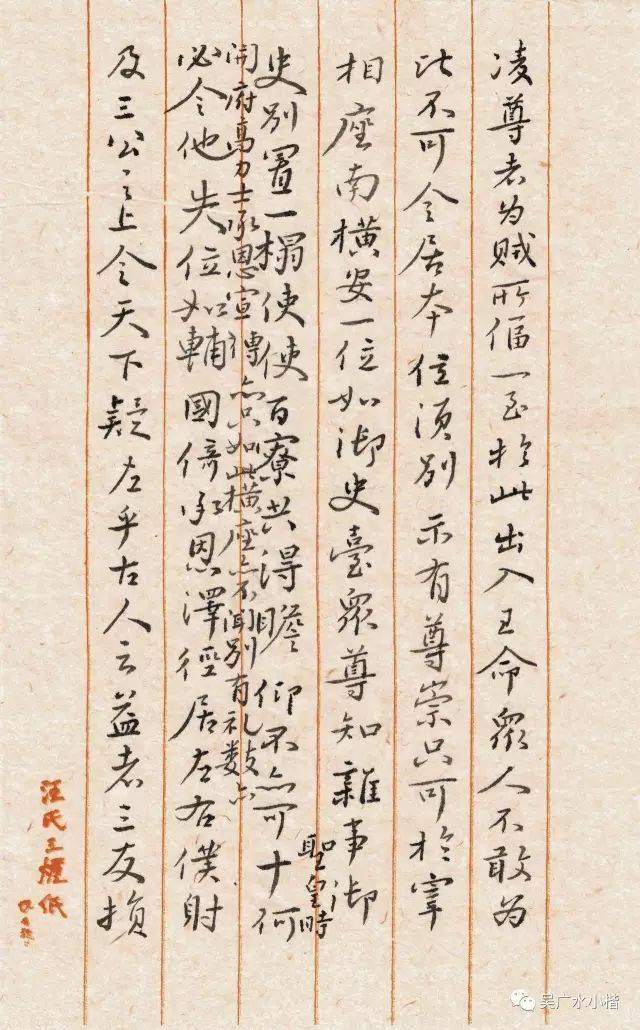 凌尊者为贼所偪一至於此出入王命眾人不敢为
比不可令居本位須别示有尊崇只可於宰
相座南横安一位如御史臺眾尊知雜事御
史别置一榻使使百寮共得瞻仰不亦可乎何
聖皇時
開府高力士承恩宣傳亦只如此横座亦不聞别有礼数亦
必令他失位如輔國倚承恩澤徑居左右僕射
及三公之上令天下疑左乎古人云益者三友損
汪氏
吴广水小楷